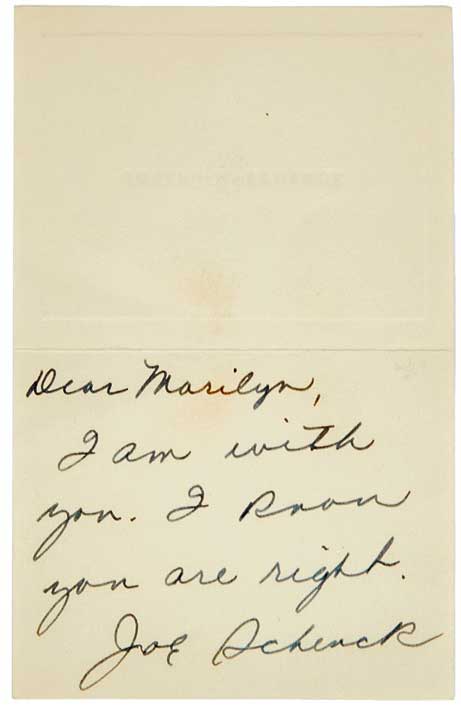 Dear Marilyn,
I am with
you. I know
you are right.
Joe Schenck